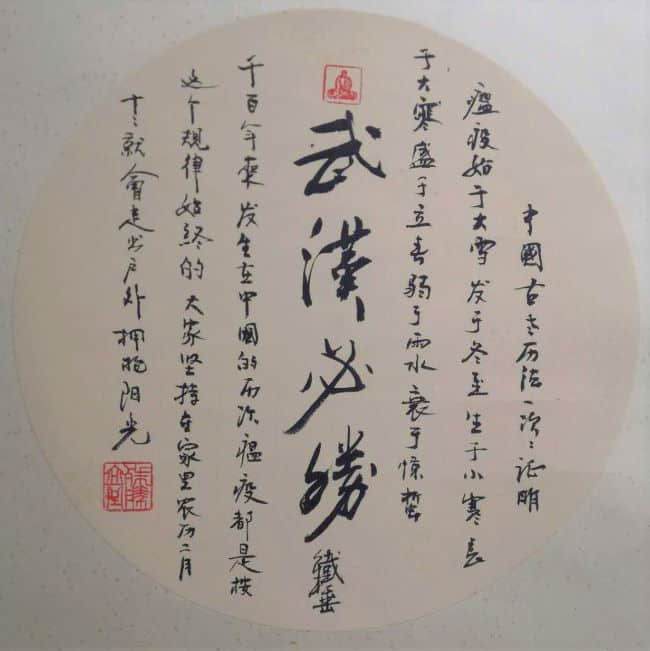 中國古老历法一次次证明
瘟疫始于大雪发于冬至生于小寒长
于大寒盛于立春弱于雨水衰于惊蛰
武漢必勝
鐵垂
千百年来发生在中國的历次瘟疫都是按
这个规律始终的大家坚持在家里农历二月
十二就會走出户外拥抱阳光